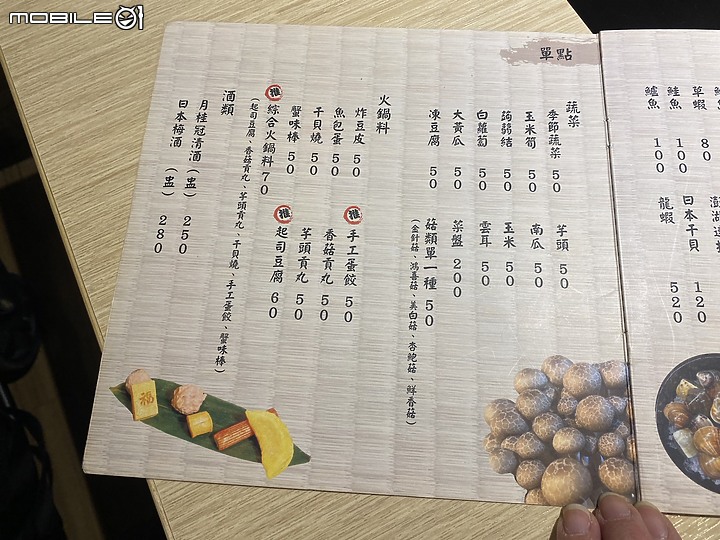 MOBILE01
單點
蔬菜
季節蔬菜 50
玉米筍 50
蒟蒻結 50
白蘿蔔 50
大黃瓜 50
凍豆腐 50
芋頭 50
南瓜 50
玉米 50
雲耳 50
菜盤 200
菇類單一種 50
(金針菇、鴻喜菇、美白菇、杏鮑菇、鮮香菇)
火鍋料
炸豆皮 50
魚包蛋 50
干貝燒 50
蟹味棒 50
推 綜合火鍋料 70
(起司豆腐、香菇貢丸、芋頭貢丸、干貝燒、手工蛋餃、蟹味棒)
推 手工蛋餃 50
香菇貢丸 50
芋頭貢丸 50
推 起司豆腐 60
酒類
月桂冠清酒(盅) 250
日本梅酒(盅) 280
草蝦 80
鮭魚 100
鱸魚 100
日本干貝 120
龍蝦 520
福